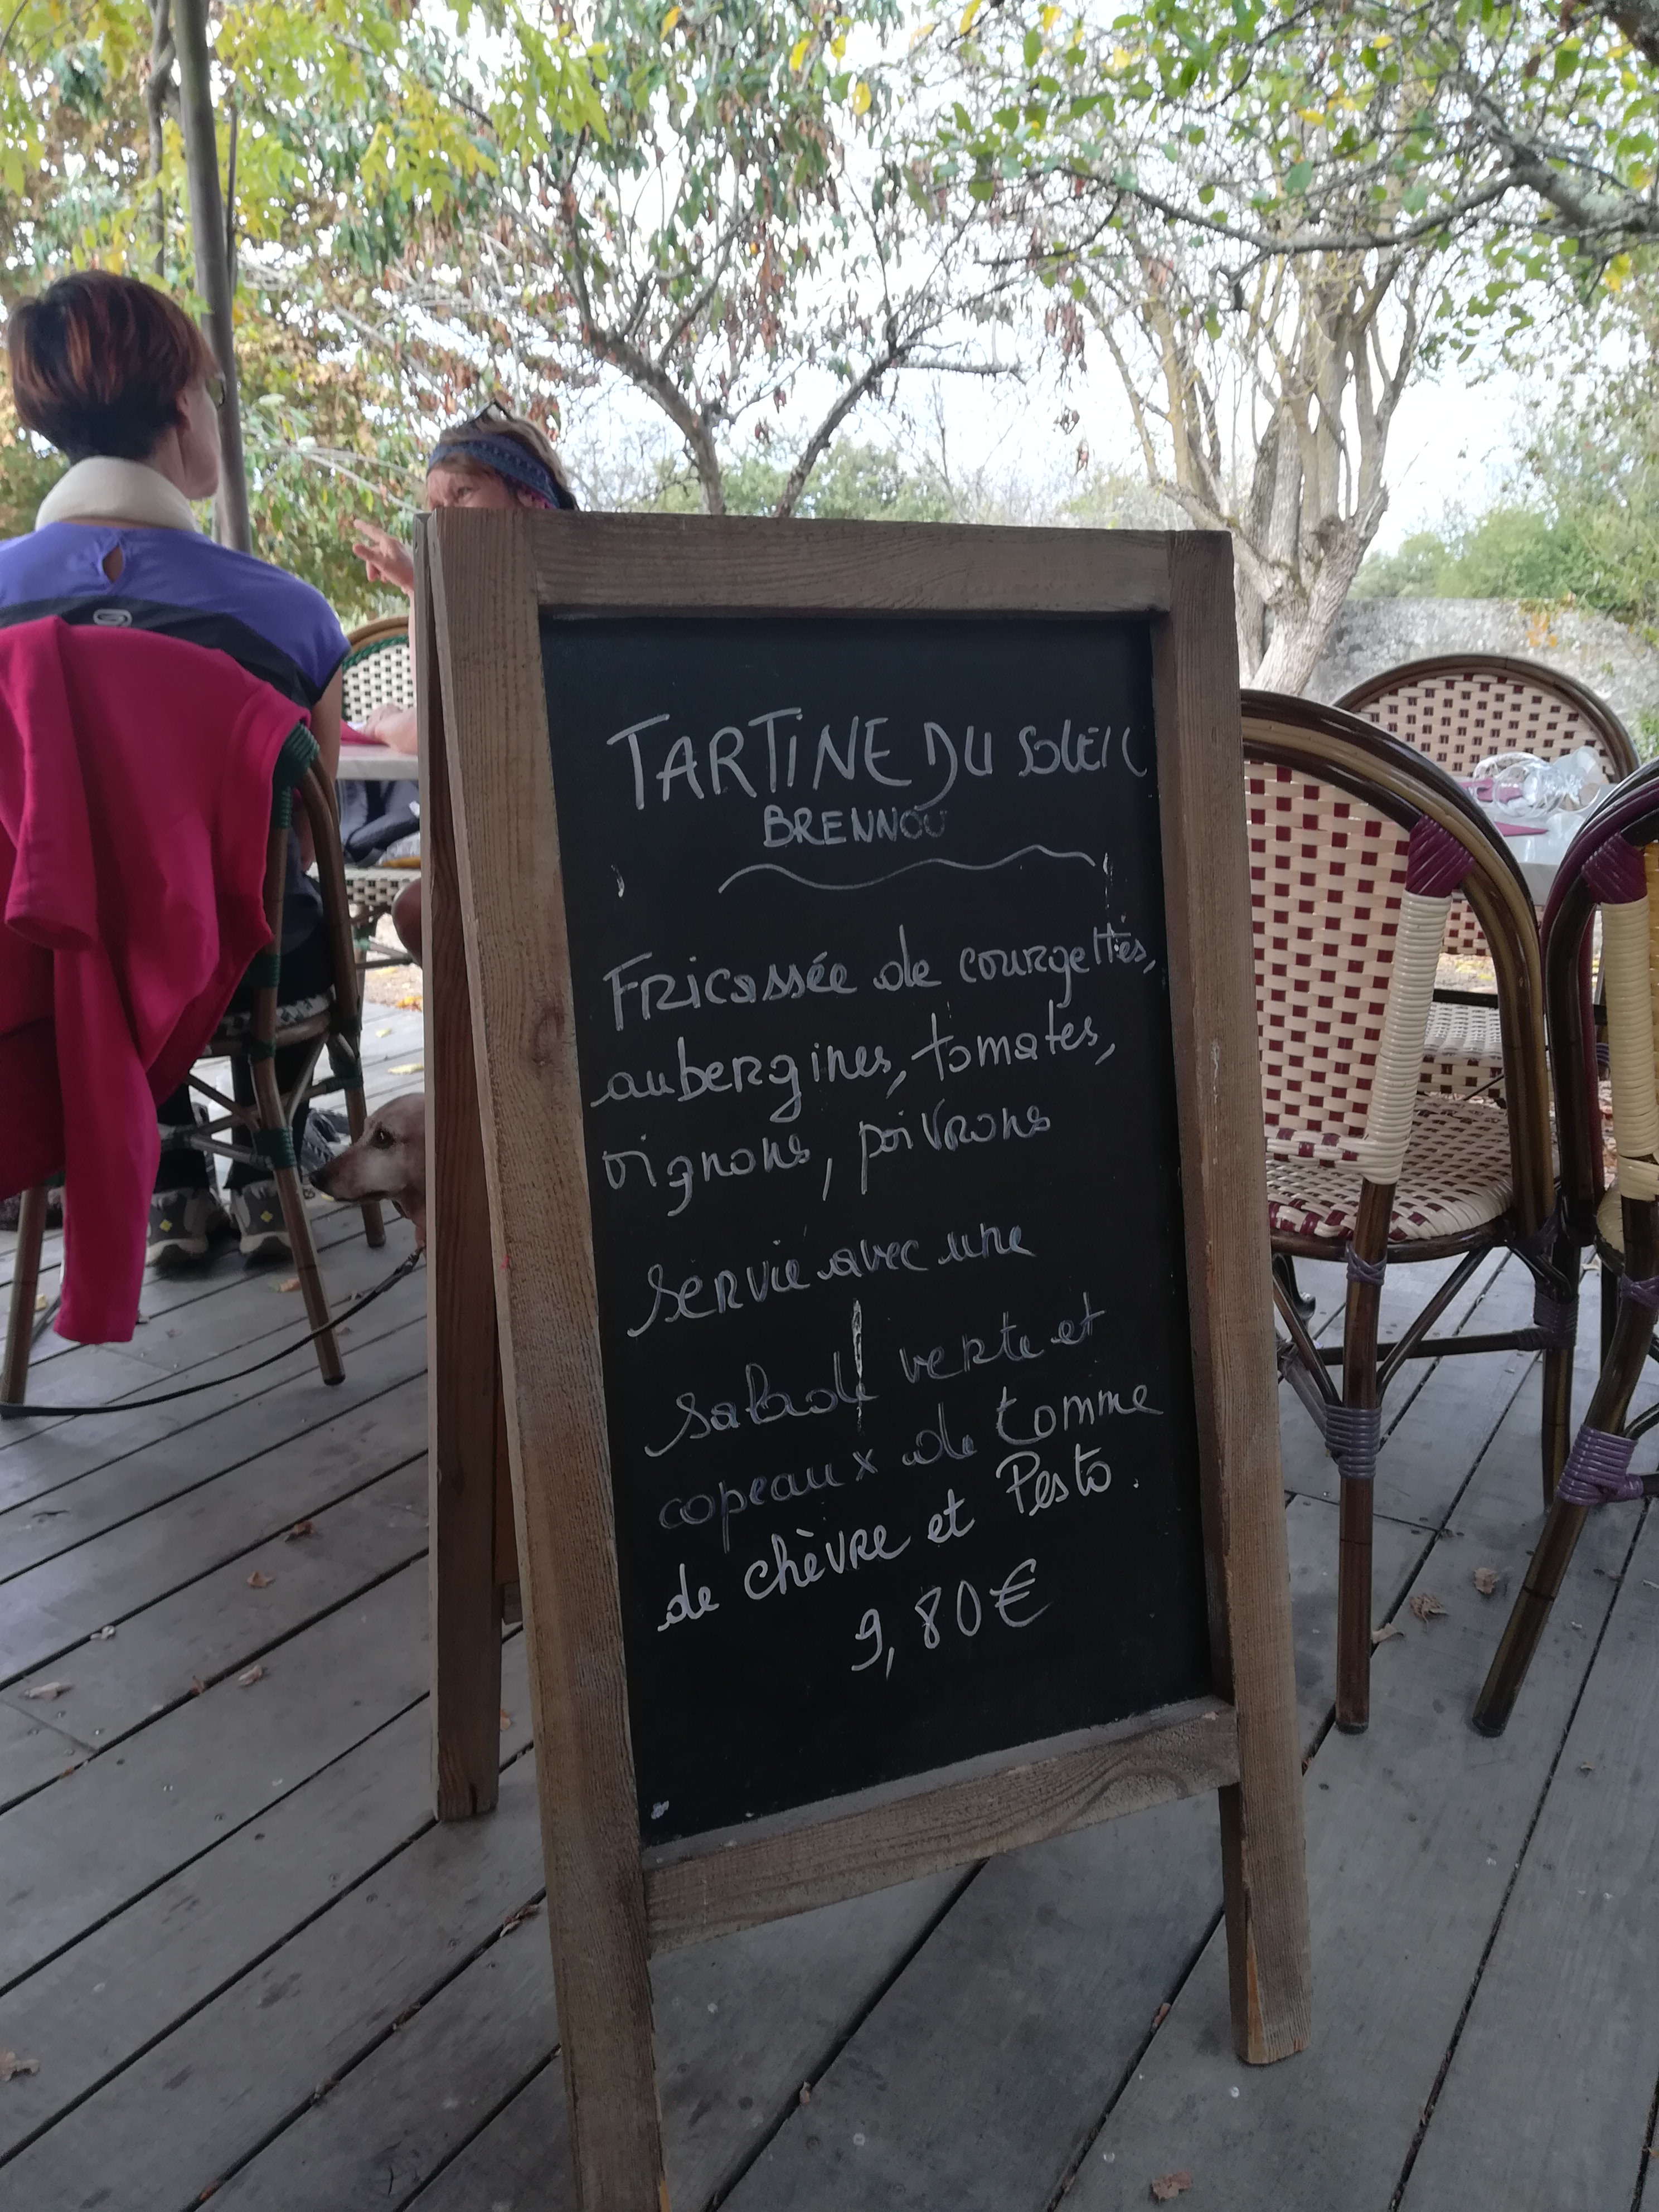 TARTiNE DU SOLEIL
BRENNOU
Fricassée de courgettes,
aubergines, tomates,
oignons, poivrons
servie avec une
salade verte et
copeaux de tomme
de chèvre et Pesto.
9,80€